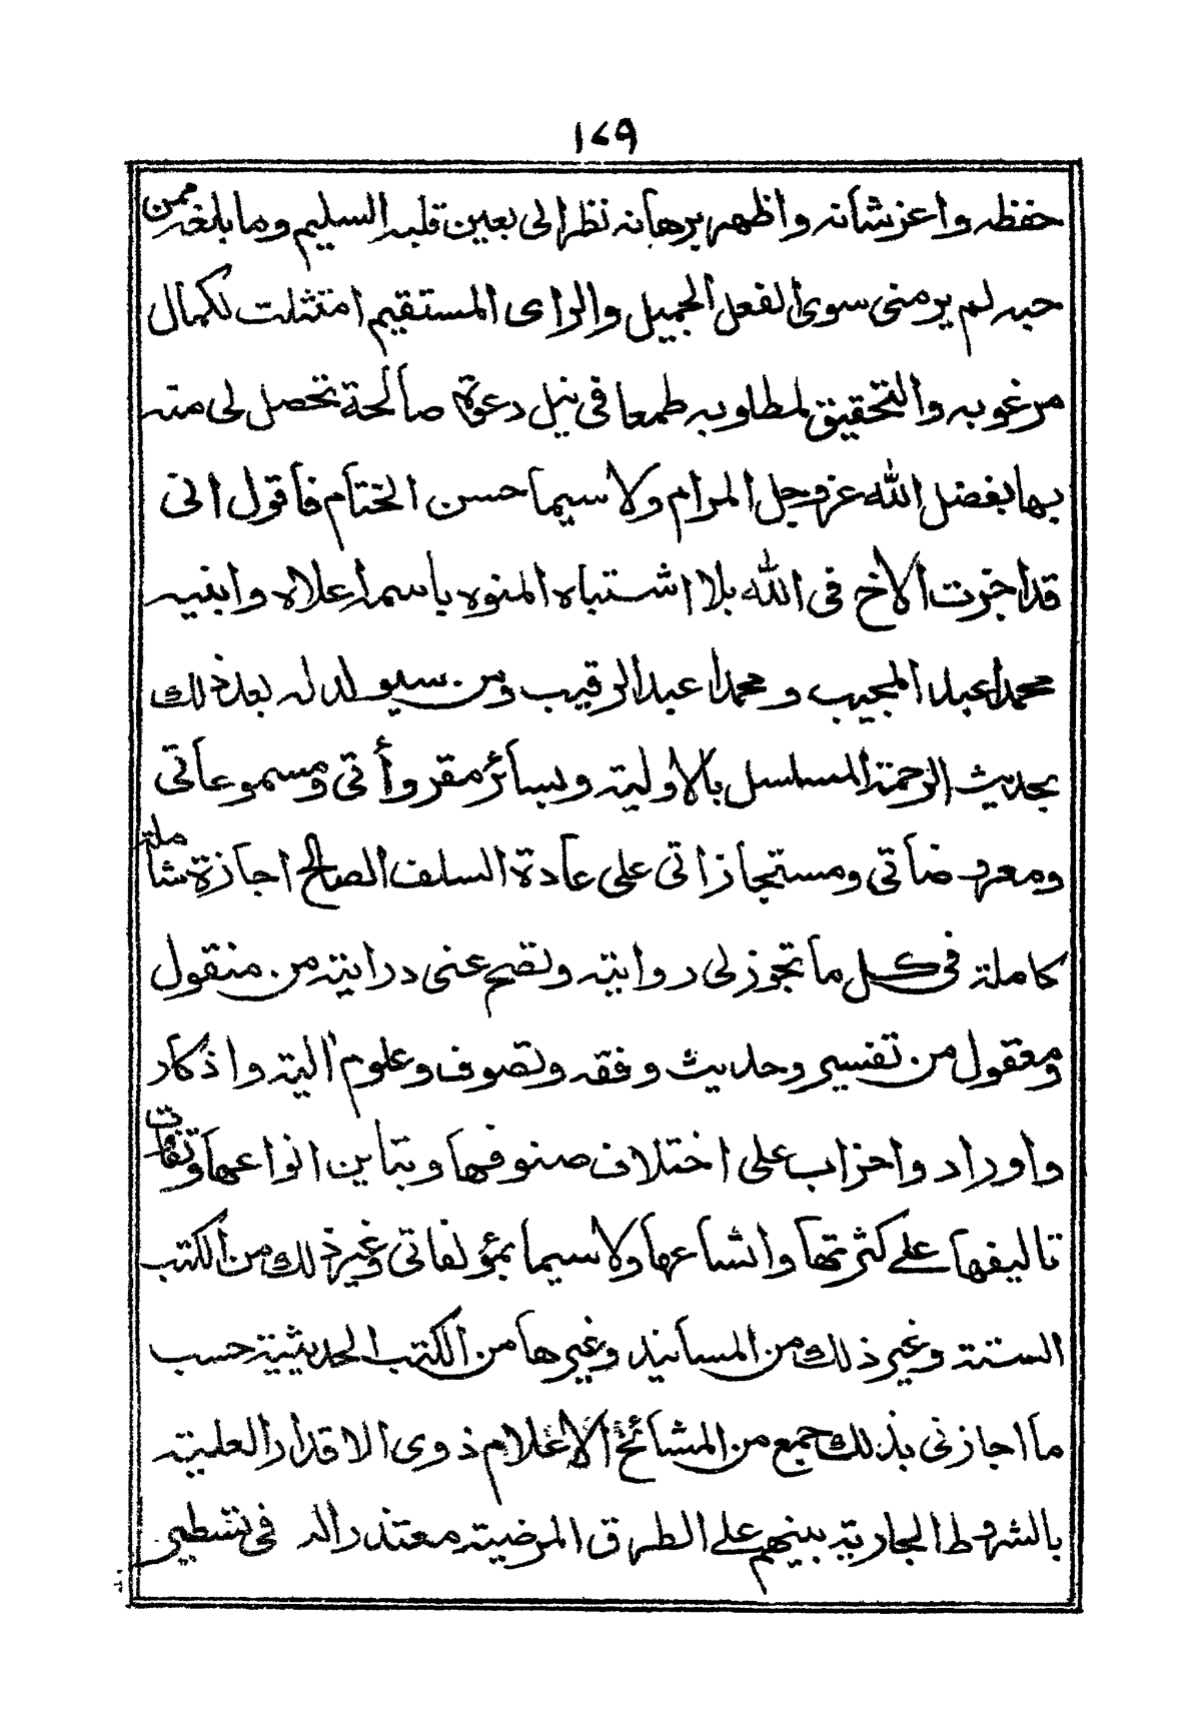 ١٧٩
حفظه واعز شأنه واظهر برهانه نظر الى بعين قلبه السليم وما بلغه ممن
حبه لم ير منى سوى الفعل الجميل والراى المستقيم امتثلت لكمال
مرغوبه والتحقيق لمطلوبه طمعا فى نيل دعوة صالحة تحصل لى منه
بها بفضل الله عز وجل المرام ولا سيما حسن الختام فاقول انى
قد اجزت الاخ فى الله بلا اشتباه المنوه باسمه اعلاه وابنيه
محمدا عبد المجيب و محمدا عبد الرقيب ومن سيولد له بعد ذلك
بحديث الرحمة المسلسل بالاولية وبسائر مقروأتى ومسموعاتى
ومعروضاتى ومستجازاتى على عادة السلف الصالح اجازة شاملة
كاملة فى كل ما تجوز لى روايته وتصح عنى درايته من منقول
ومعقول من تفسير وحديث وفقه وتصوف وعلوم الية واذكار
واوراد واحزاب على اختلاف صنوفها وتباين انواعها وتفات
تاليفها على كثرتها واتساعها ولا سيما بمؤلفاتى وغير ذلك من الكتب
الستة وغير ذلك من المسانيد وغيرها من الكتب الحديثية حسب
ما اجازنى بذلك جمع من المشائخ الاعلام ذوى الاقدار العلية
بالشروط الجارية بينهم على الطرق المرضية معتذرا له فى تشطير